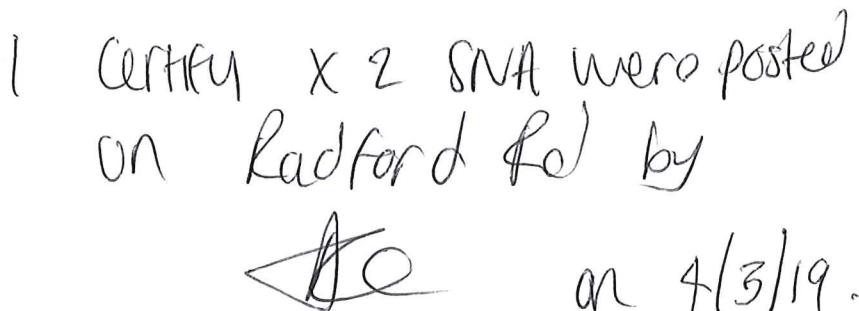 I certify x 2 SNA were posted
on Radford Rd by
on 4/3/19.